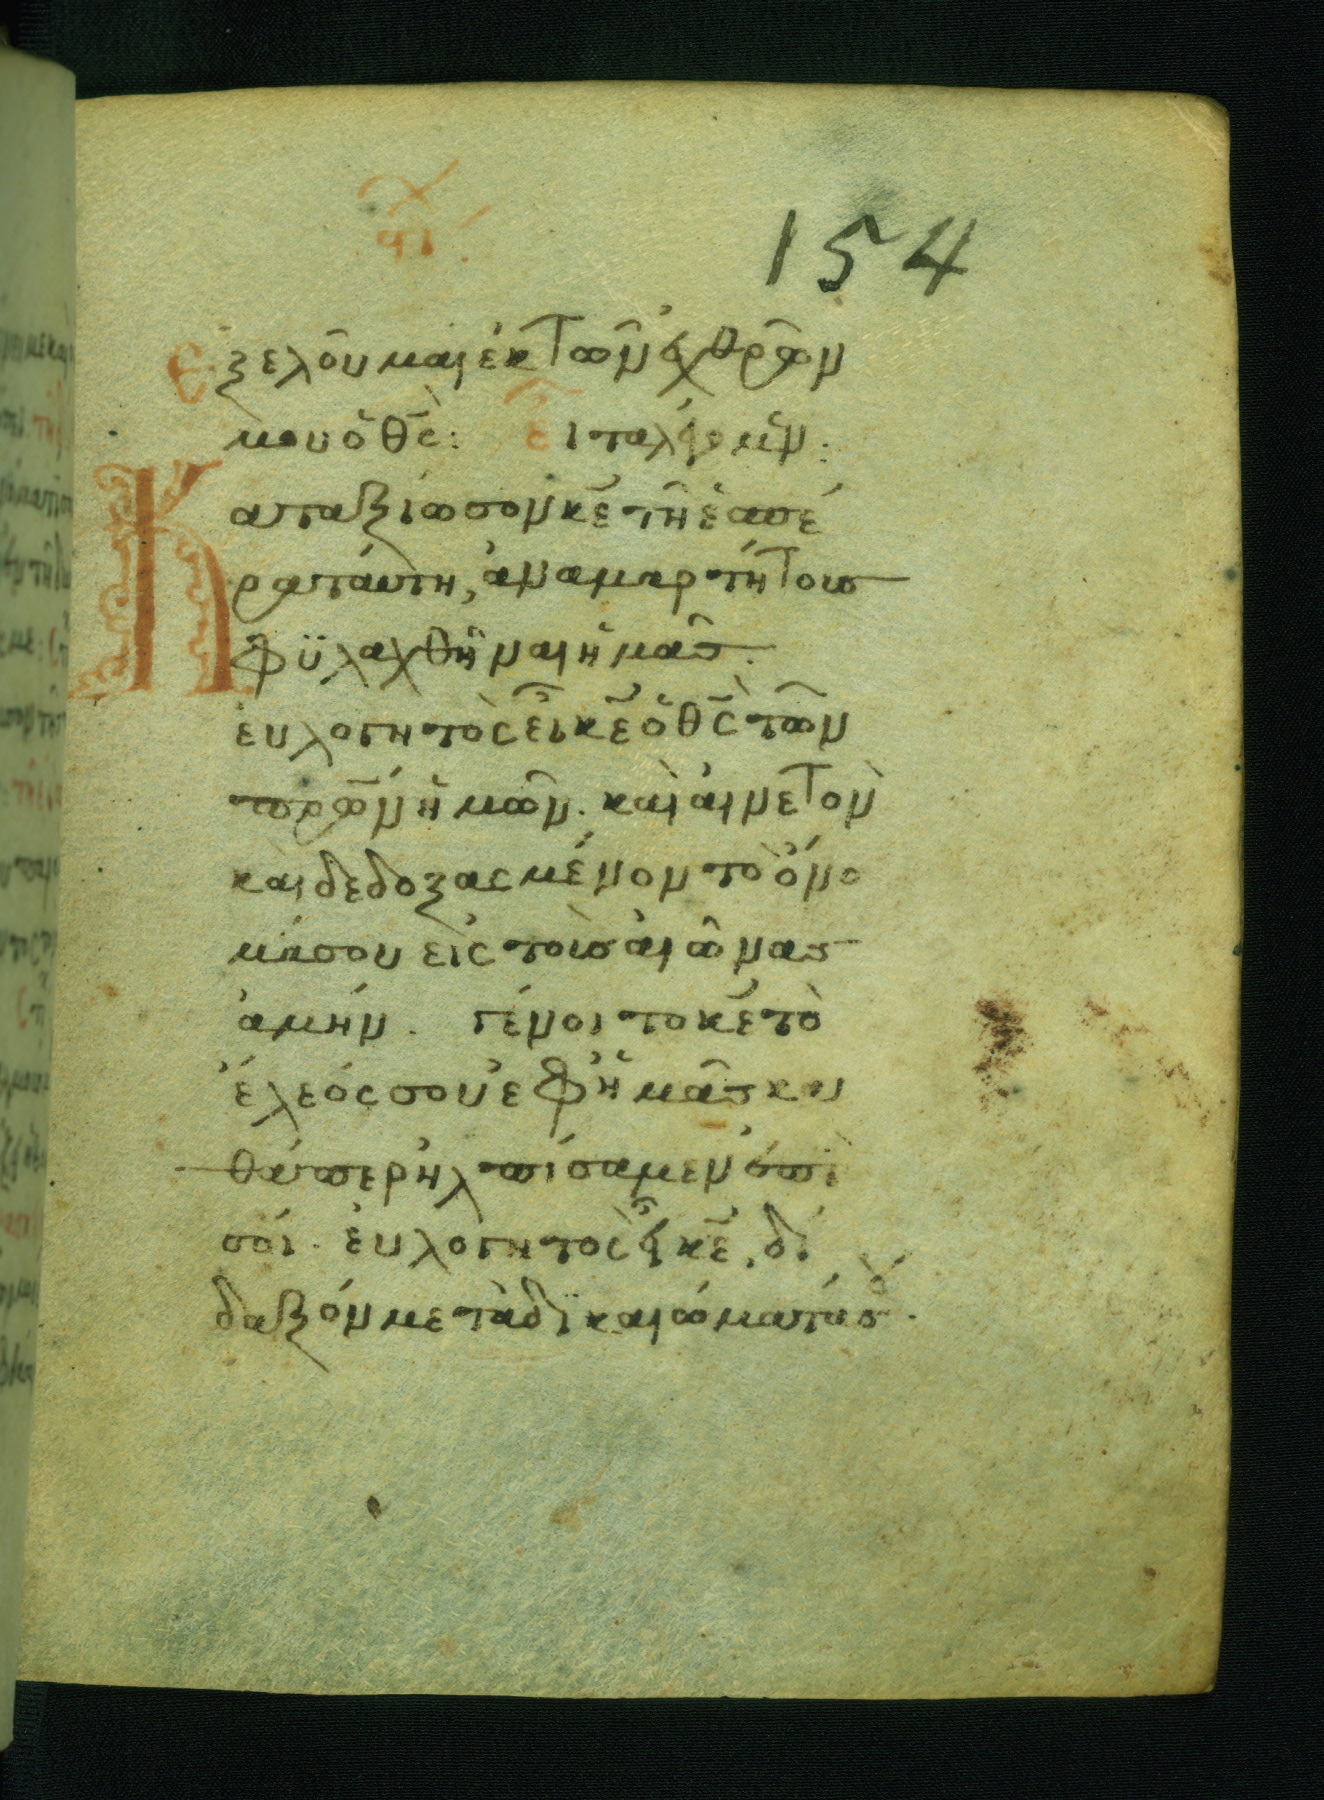 154
Ἐξελοῦ μαι ἐκ τῶν ἐχθρῶν
μου ὁ θς: εἶτα λέγομεν:
Καταξίωσον κε τῆ ἑσπέ
ρα ταύτη, ἀναμαρτήτους
φϋλαχθῆναι ἡμᾶς.
ἐυλογητὸς εἶ κε ὁ θς τῶν
πρων ἡμῶν. καὶ ἀινετὸν
και δεδοξασμένον τὸ ὄνο
μά σου εἰς τοὺς ἀιῶνας
ἀμήν. γένοιτο κε τὸ
ἔλεός σου ἐφ ἡμᾶς κα
θάπερ ἠλπίσαμεν ἐπὶ
σοί. ἐυλογητὸς εἶ κε, δί
δαξόν με τὰ δϊκαιώματά σου.